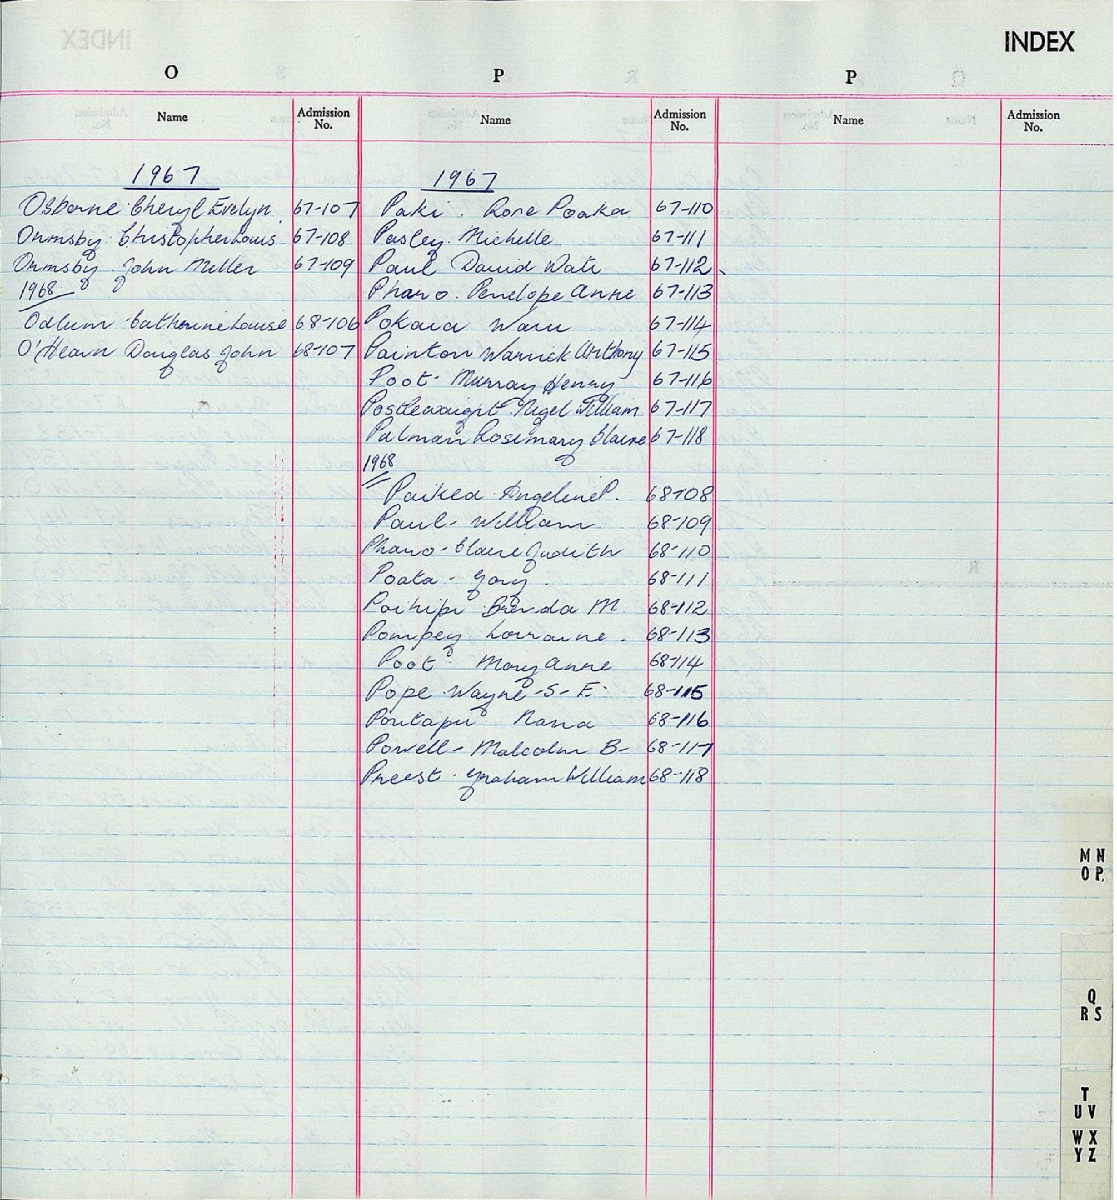 INDEX
O
Name
Admission
No.
1967
Osborne Cheryl Evelyn 67-107
Ormsby Christopher Louis 67-108
Ormsby John Miller 67-109
1968
Odlum Catherine Louise 68-106
O'Hearn Douglas John 68-107
P
Name
Admission
No.
1967
Paki. Rose Poaka 67-110
Pasley. Michelle 67-111
Paul David Wati 67-112
Pharo. Penelope Anne 67-113
Pokaia Waru 67-114
Painton Warrick Anthony 67-115
Poot. Murray Henry 67-116
Postlewaight Nigel William 67-117
Palman Rosemary Claire 67-118
1968
Paikea Angeline P. 68-108
Paul- William 68-109
Pharo- Claire Judith 68-110
Poata - Gary 68-111
Poihipi Brenda M 68-112
Pompey Lorraine. 68-113
Poot Mary Anne 68-114
Pope Wayne -S- E. 68-115
Poutapu Nana 68-116
Powell- Malcolm B- 68-117
Preest. Graham William 68-118
P
Name
Admission
No.
M N
O P.
Q
R S
T
U V
W X
Y Z